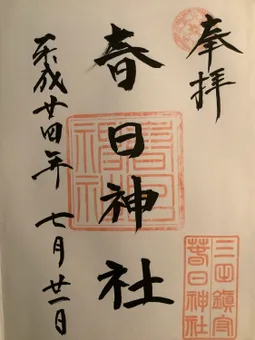 奉拝
春日神社
平成廿四年 七月廿一日
春日
神社
三田鎮守
春日神社